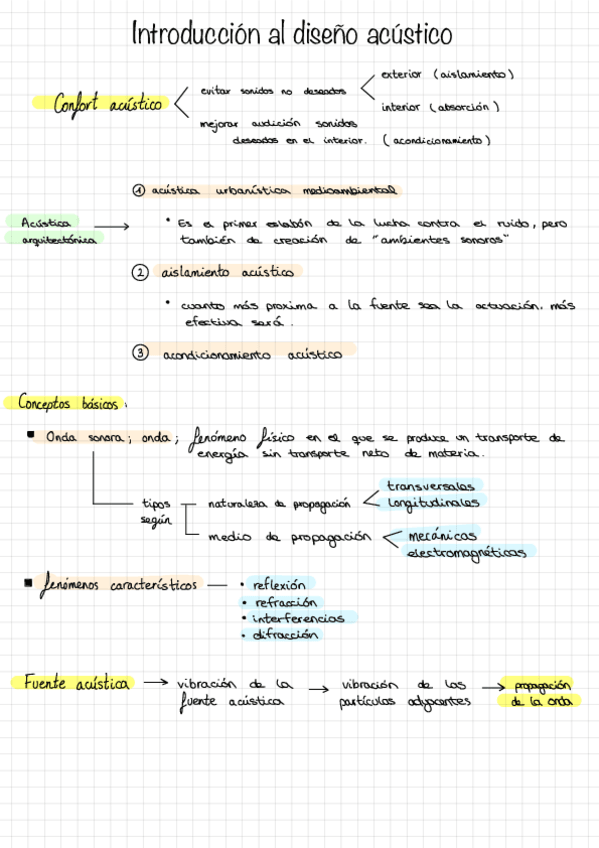 Introducción al diseño acústico
Confort acústico
evitar sonidos no deseados
exterior (aislamiento)
interior (absorción)
mejorar audición sonidos
deseados en el interior. (acondicionamiento)
Acústica
arquitectónica
① acústica urbanística medioambiental
• Es el primer eslabón de la lucha contra el ruido, pero
también de creación de "ambientes sonoros"
② aislamiento acústico
• cuanto más proxima a la fuente sea la actuación, más
efectiva será.
③ acondicionamiento acústico
Conceptos básicos:
▪ Onda sonora; onda; fenómeno físico en el que se produce un transporte de
energía sin transporte neto de materia.
tipos
según
naturaleza de propagación
transversales
longitudinales
medio de propagación
mecánicas
electromagnéticas
▪ fenómenos característicos
• reflexión
• refracción
• interferencias
• difracción
Fuente acústica
vibración de la
fuente acústica
vibración de las
partículas adyacentes
propagación
de la onda